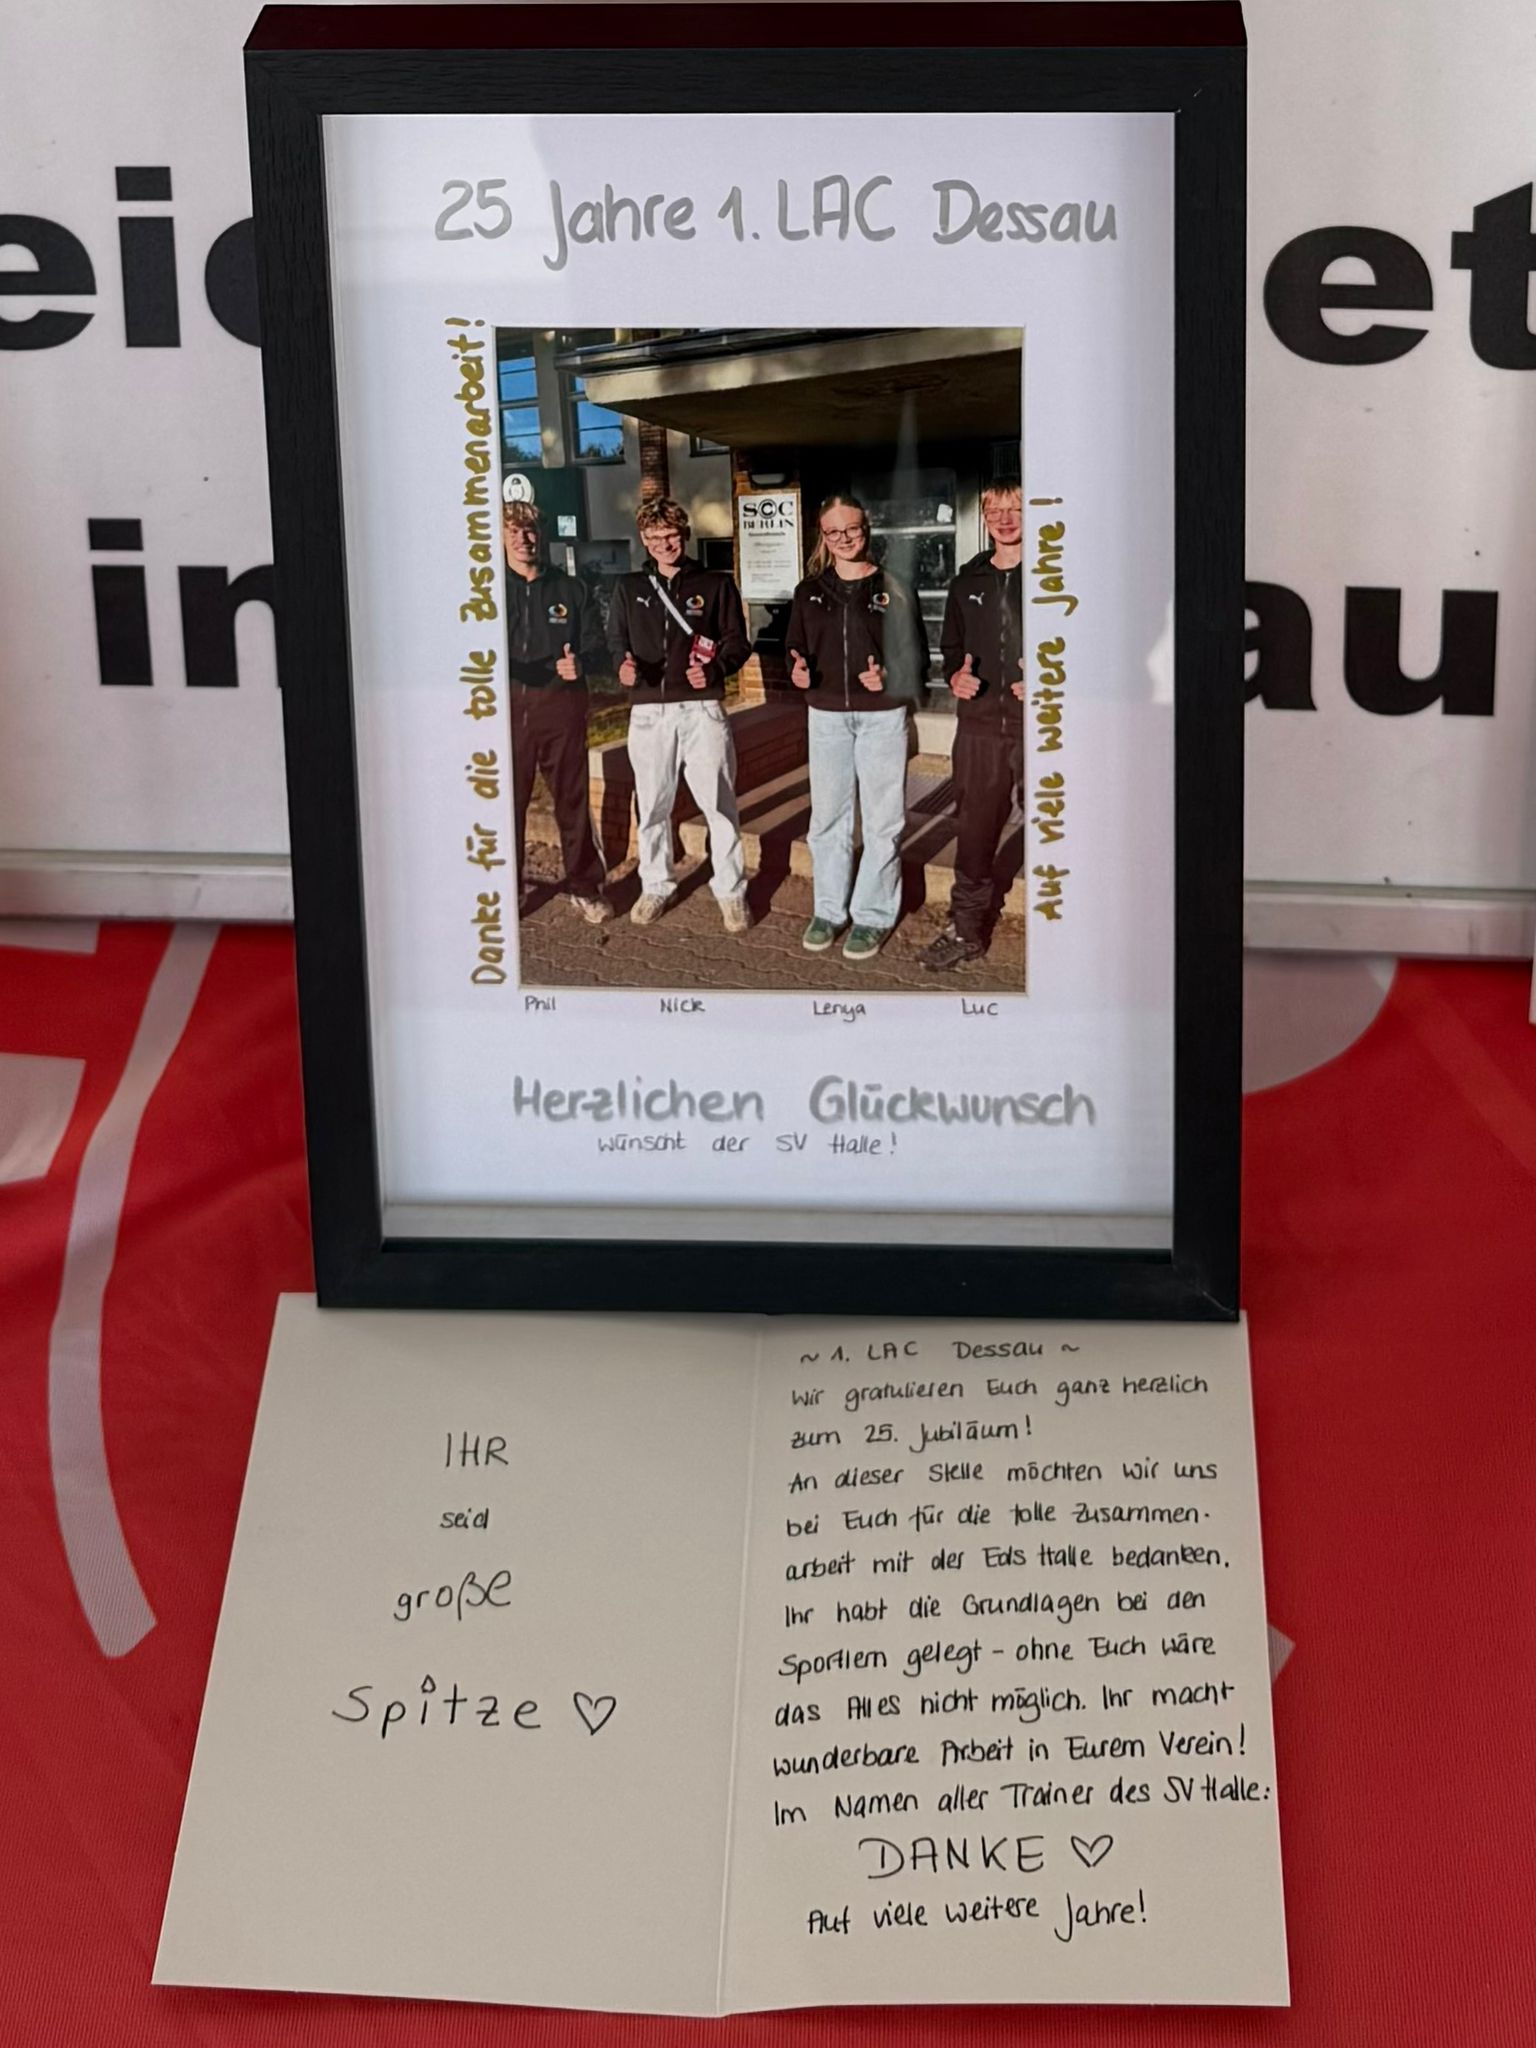 25 Jahre 1. LAC Dessau
Danke für die tolle Zusammenarbeit!
Auf viele weitere Jahre!
SCC
BERLIN
Phil Nick Lenya Luc
Herzlichen Glückwunsch
wünscht der SV Halle!
IHR
seid
große
Spitze ♡
~ 1. LAC Dessau ~
Wir gratulieren Euch ganz herzlich
zum 25. Jubiläum!
An dieser Stelle möchten wir uns
bei Euch für die tolle Zusammen-
arbeit mit der Eds Halle bedanken.
Ihr habt die Grundlagen bei den
Sportlern gelegt - ohne Euch wäre
das Alles nicht möglich. Ihr macht
wunderbare Arbeit in Eurem Verein!
Im Namen aller Trainer des SV Halle:
DANKE ♡
Auf viele weitere Jahre!